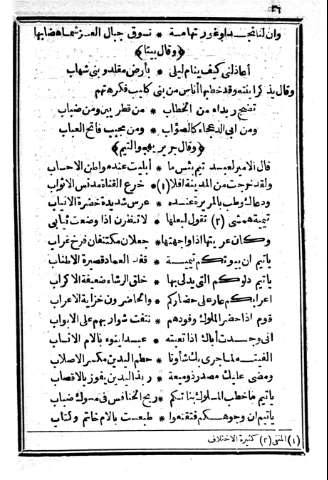 ٣٦
وان لنا نجدا وغورتهامة * نسوق جبال العز شما هضابها
﴿وقال بيتا﴾
أعاذلتي كيف ينام ليلى * بأرض مقلدو بني شهاب
وقال يذكر ابنته وقد خطبها أناس من بني كليب فكرهتهم
تضج ربداء من الخطاب * من قطريين ومن ضباب
ومن أبى الدعجاء كالصؤاب * ومن مجيب فاتح العياب
﴿وقال جرير يهجو التيم﴾
قال الامير لعبد تيم بئس ما * أبليت عند مواطن الاحساب
ولقد خرجت من المدينة افلا (١) * خرع القناة مدنس الاثواب
ودعاك وطب بالمريرة عنده * عرس شديدة خضرة الانياب
تيمية همشى (٢) تقول لبعلها * لا تنظرن اذا وضعت ثيابي
وكان عريتها اذا واجهتها * جعلان مكتنفان فرخ غراب
ياتيم ان بيوتكم تيمية * قفد العماد قصيرة الاطناب
ياتيم دلوكم التى يدلى بها * خلق الرشاء ضعيفة الاكراب
اعرابكم عار على حضاركم * والحاضرون خزاية الاعراب
قوم اذا حضر الملوك وفودهم * نتفت شواربهم على الابواب
انى وجدت أباك اذ أتعبته * عبدا ينوء بألام الانساب
الفيته لما جرى بك شأونا * حطم اليدين مكسر الاصلاب
ومضى عليك مصدر ذو ميعة * ربذ اليدين يفوز بالاقصاب
ياتيم ما خطب الملوك بناتكم * ريح الخنافس في مسوك ضباب
ياتيم ان وجوهكم فتقنعوا * طبعت بألام خاتم وكتاب
(١) المنى (٢) كثيرة الاختلاف